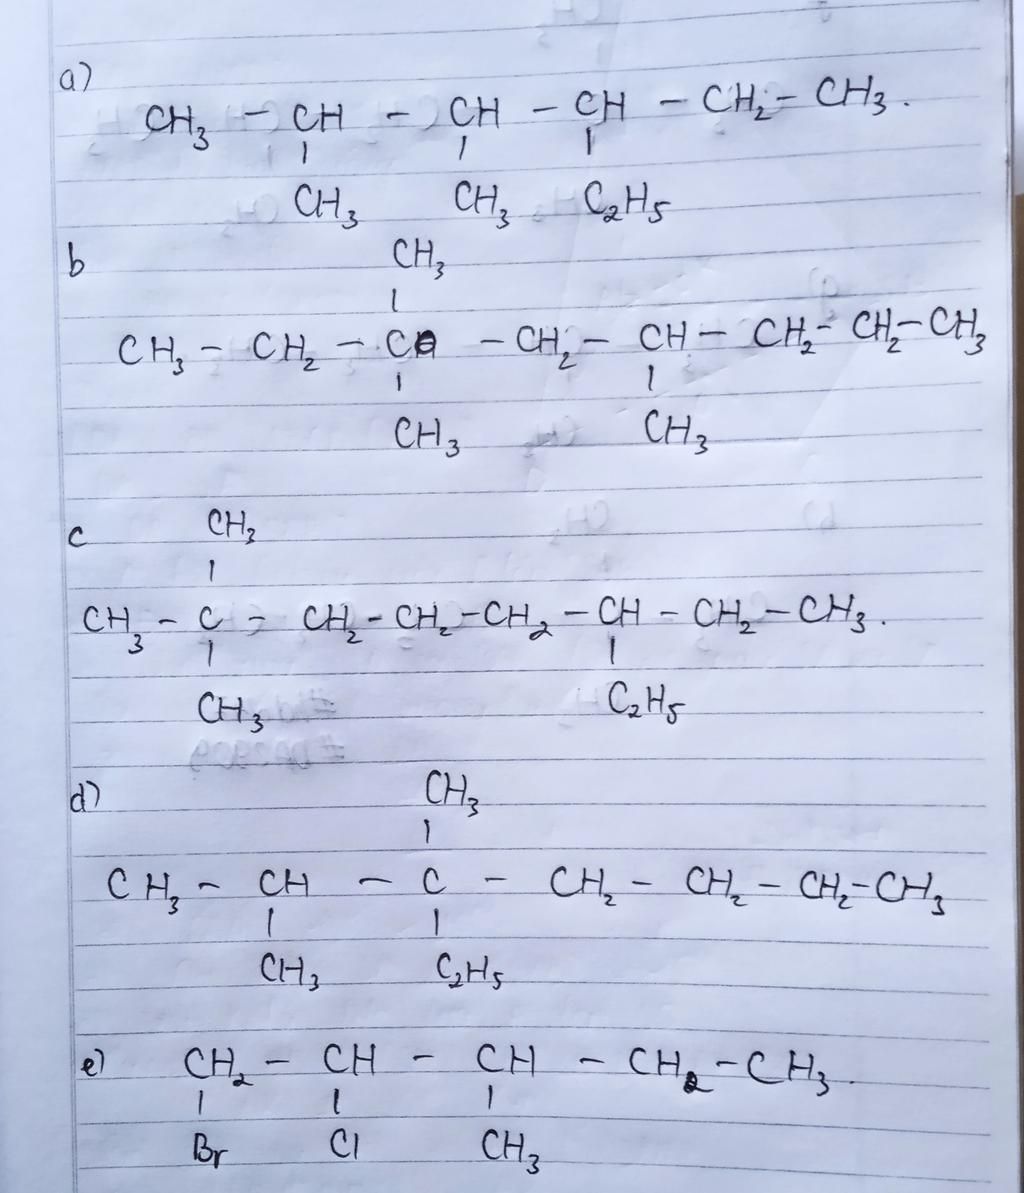 a)
CH₃ - CH - CH - CH - CH₂ - CH₃.
CH₃ CH₃ C₂H₅
b
CH₃
CH₃ - CH₂ - C - CH₂ - CH - CH₂ - CH₂ - CH₃
CH₃ CH₃
c
CH₃
CH₃ - C - CH₂ - CH₂ - CH₂ - CH - CH₂ - CH₃.
CH₃ C₂H₅
d)
CH₃
CH₃ - CH - C - CH₂ - CH₂ - CH₂ - CH₃
CH₃ C₂H₅
e) CH₂ - CH - CH - CH₂ - CH₃.
Br Cl CH₃